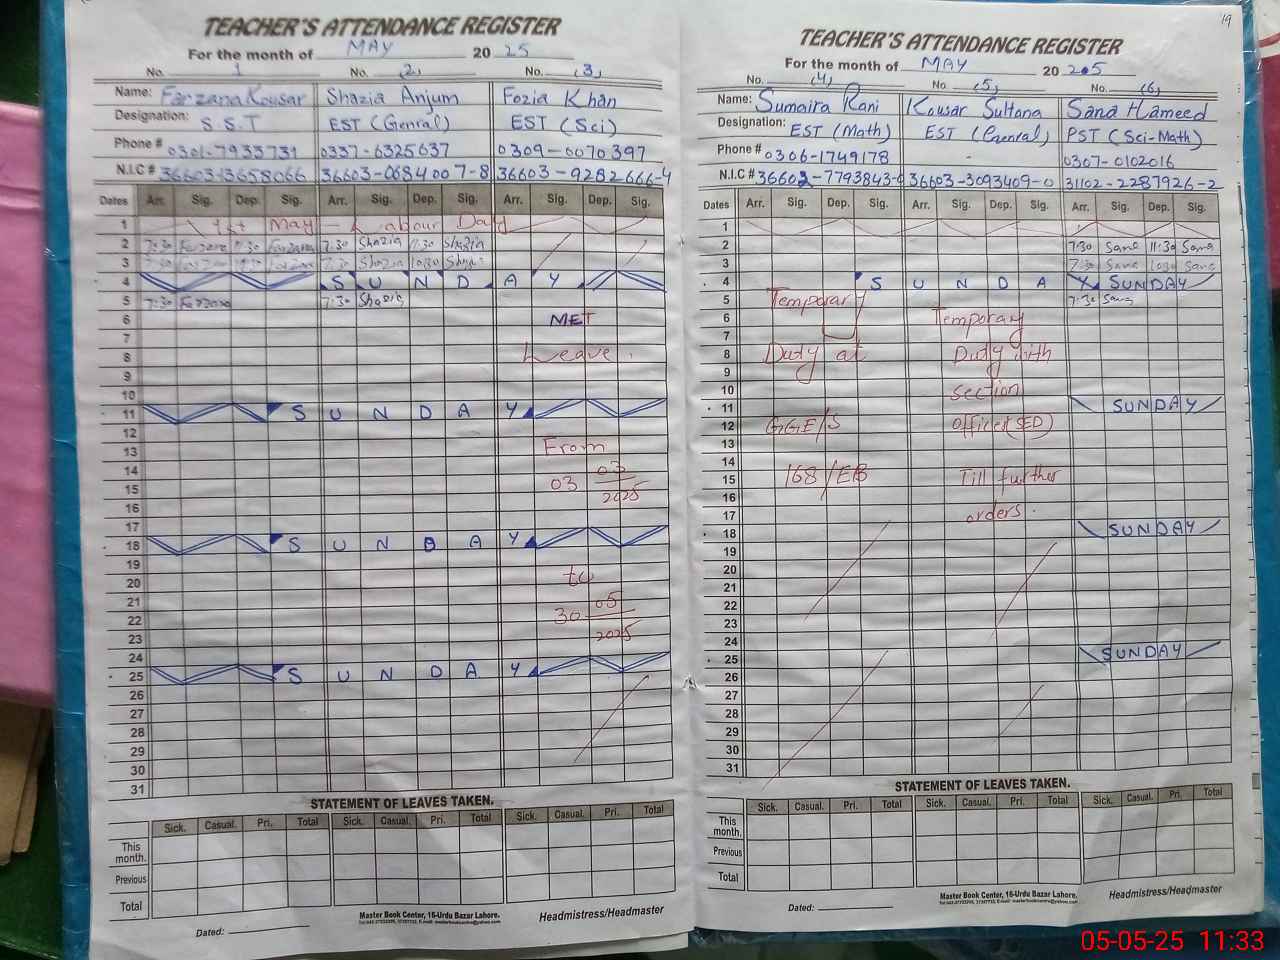 TEACHER'S ATTENDANCE REGISTER
For the month of MAY 20 25
No. 1 No. (2) No. (3)
Name: Farzana Kousar Shazia Anjum Fozia Khan
Designation: S.S.T EST (Genral) EST (Sci)
Phone # 0301-7933731 0337-6325637 0309-0070397
N.I.C # 36603-3658066 36603-0684007-8 36603-9282666-4
Dates Arr. Sig. Dep. Sig. Arr. Sig. Dep. Sig. Arr. Sig. Dep. Sig.
1 1st May - Labour Day
2 7:30 Farzana 11:30 Farzana 7:30 Shazia 11:30 Shazia
3 7:30 Farzana 10:30 Farzana 7:30 Shazia 10:30 Shazia
4 S U N D A Y
5 7:30 Farzana 7:30 Shazia
6 MET
7
8 Leave.
9
10
11 S U N D A Y
12
13 From
14 03
15 03 2025
16
17
18 S U N D A Y
19
20 to
21 05
22 30
23 2025
24
25 S U N D A Y
26
27
28
29
30
31
STATEMENT OF LEAVES TAKEN.
Sick. Casual. Pri. Total Sick. Casual. Pri. Total Sick. Casual. Pri. Total
This month.
Previous
Total
Master Book Center, 16-Urdu Bazar Lahore.
Dated: Headmistress/Headmaster
19
TEACHER'S ATTENDANCE REGISTER
For the month of MAY 20 25
No. (4) No. (5) No. (6)
Name: Sumaira Rani Kousar Sultana Sana Hameed
Designation: EST (Math) EST (Genral) PST (Sci-Math)
Phone # 0306-1749178 - 0307-0102016
N.I.C # 36602-7793843-0 36603-3093409-0 31102-2287926-2
Dates Arr. Sig. Dep. Sig. Arr. Sig. Dep. Sig. Arr. Sig. Dep. Sig.
1
2 7:30 Sana 11:30 Sana
3 7:30 Sana 10:30 Sana
4 S U N D A Y SUNDAY
5 Temporary 7:30 Sana
6 Temporary
7
8 Duty at Duty with
9
10 section
11 SUNDAY
12 GGE/S Officer (SED)
13
14
15 168/EB Till further
16
17 orders.
18 SUNDAY
19
20
21
22
23
24
25 SUNDAY
26
27
28
29
30
31
STATEMENT OF LEAVES TAKEN.
Sick. Casual. Pri. Total Sick. Casual. Pri. Total Sick. Casual. Pri. Total
This month.
Previous
Total
Master Book Center, 16-Urdu Bazar Lahore.
Dated: Headmistress/Headmaster
05-05-25 11:33